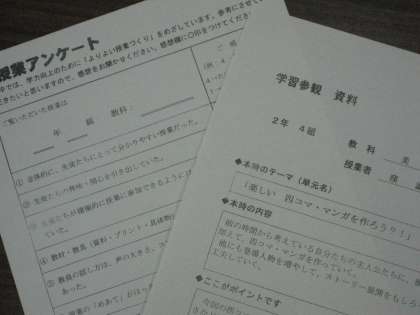 授業アンケート
では、学力向上のために「よりよい授業づくり」をめざしています。参考にさせて
だきたいと思いますので、感想をお聞かせください。感想欄に○印をつけてください
ご覧いただいた授業は
年 組 教科：
① 全体的に、生徒たちにとって分かりやすい授業だった。
② 生徒たちの興味・関心を引き出していた。
③ 生徒たちが積極的に授業に参加できるように
④ 教材・教具（資料・プリント・具体物
⑤ 教師の話し方は、声の大きさ、
あった。
授業の「めあて」が
学習参観 資料
2年 4組
教 科 美
授業者
◆本時のテーマ（単元名）
「楽しい 四コマ・マンガを作ろう！」
◆本時の内容
前の時間から考えている自分たちの主人公たちに、
加えて、四コマ・マンガを作っていく。
他にも登場人物を増やして、ストーリー展開をもしろ
工夫していく。
◆ここがポイントです